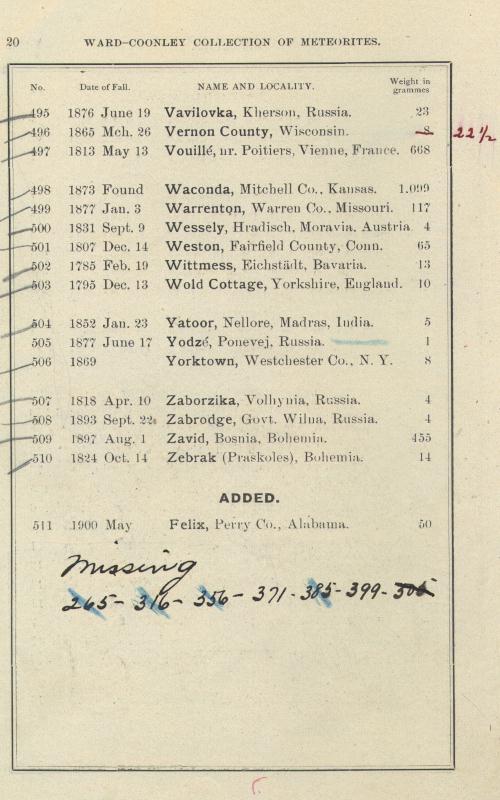 20 WARD–COONLEY COLLECTION OF METEORITES.
No. Date of Fall. NAME AND LOCALITY. Weight in grammes
495 1876 June 19 Vavilovka, Kherson, Russia. 23
496 1865 Mch. 26 Vernon County, Wisconsin. 8 22 1/2
497 1813 May 13 Vouillé, nr. Poitiers, Vienne, France. 668
498 1873 Found Waconda, Mitchell Co., Kansas. 1.099
499 1877 Jan. 3 Warrenton, Warren Co., Missouri. 117
500 1831 Sept. 9 Wessely, Hradisch, Moravia. Austria 4
501 1807 Dec. 14 Weston, Fairfield County, Conn. 65
502 1785 Feb. 19 Wittmess, Eichstädt, Bavaria. 13
503 1795 Dec. 13 Wold Cottage, Yorkshire, England. 10
504 1852 Jan. 23 Yatoor, Nellore, Madras, India. 5
505 1877 June 17 Yodzé, Ponevej, Russia. 1
506 1869 Yorktown, Westchester Co., N. Y. 8
507 1818 Apr. 10 Zaborzika, Volhynia, Russia. 4
508 1893 Sept. 22 Zabrodge, Govt. Wilna, Russia. 4
509 1897 Aug. 1 Zavid, Bosnia, Bohemia. 455
510 1824 Oct. 14 Zebrak (Praskoles), Bohemia. 14
ADDED.
511 1900 May Felix, Perry Co., Alabama. 50
Missing
265- 316- 356- 371- 385- 399-